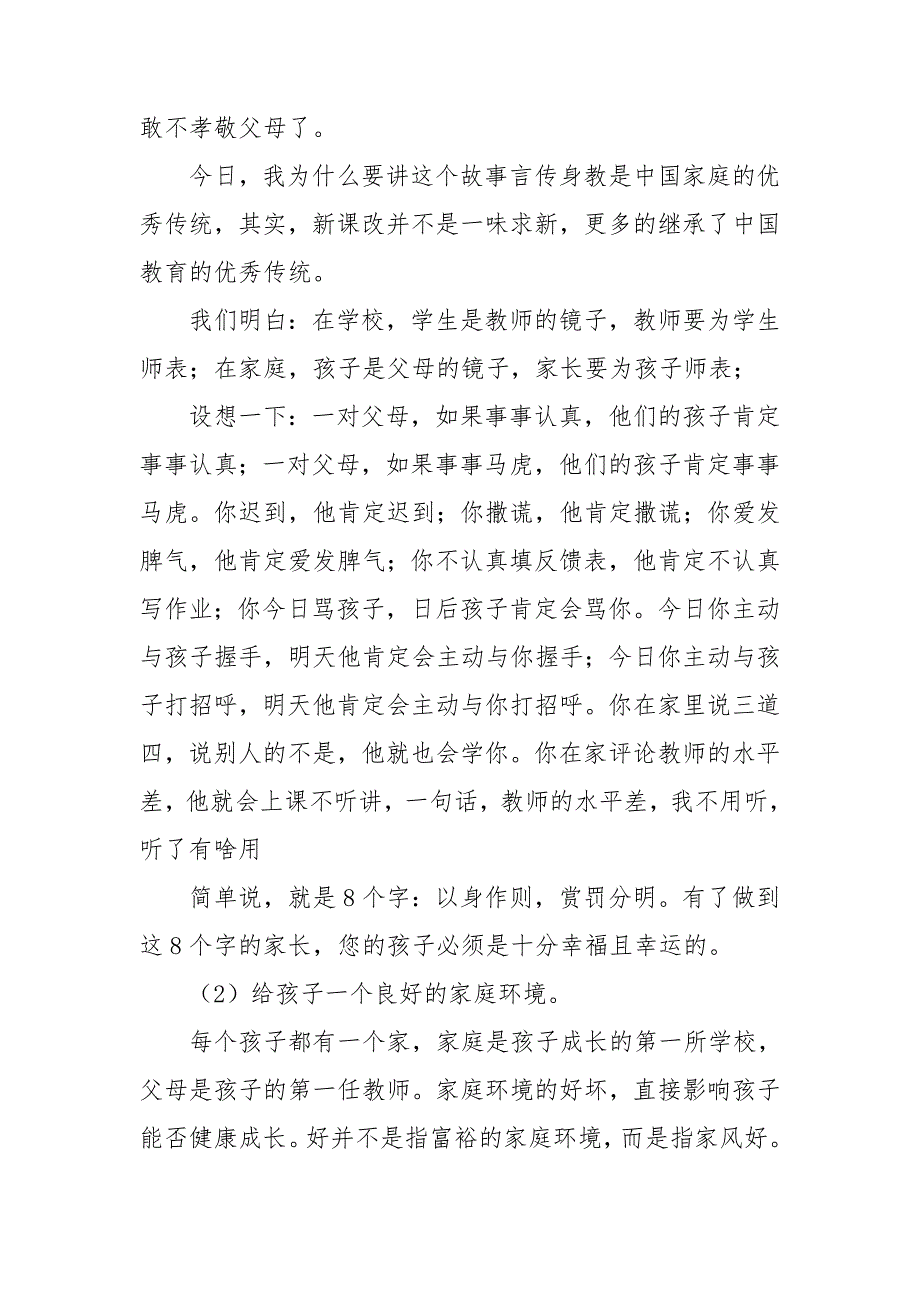 敢不孝敬父母了。
今日，我为什么要讲这个故事言传身教是中国家庭的优
秀传统，其实，新课改并不是一味求新，更多的继承了中国
教育的优秀传统。
我们明白：在学校，学生是教师的镜子，教师要为学生
师表；在家庭，孩子是父母的镜子，家长要为孩子师表；
设想一下：一对父母，如果事事认真，他们的孩子肯定
事事认真；一对父母，如果事事马虎，他们的孩子肯定事事
马虎。你迟到，他肯定迟到；你撒谎，他肯定撒谎；你爱发
脾气，他肯定爱发脾气；你不认真填反馈表，他肯定不认真
写作业；你今日骂孩子，日后孩子肯定会骂你。今日你主动
与孩子握手，明天他肯定会主动与你握手；今日你主动与孩
子打招呼，明天他肯定会主动与你打招呼。你在家里说三道
四，说别人的不是，他就也会学你。你在家评论教师的水平
差，他就会上课不听讲，一句话，教师的水平差，我不用听，
听了有啥用
简单说，就是8个字：以身作则，赏罚分明。有了做到
这8个字的家长，您的孩子必须是十分幸福且幸运的。
（2）给孩子一个良好的家庭环境。
每个孩子都有一个家，家庭是孩子成长的第一所学校，
父母是孩子的第一任教师。家庭环境的好坏，直接影响孩子
能否健康成长。好并不是指富裕的家庭环境，而是指家风好。